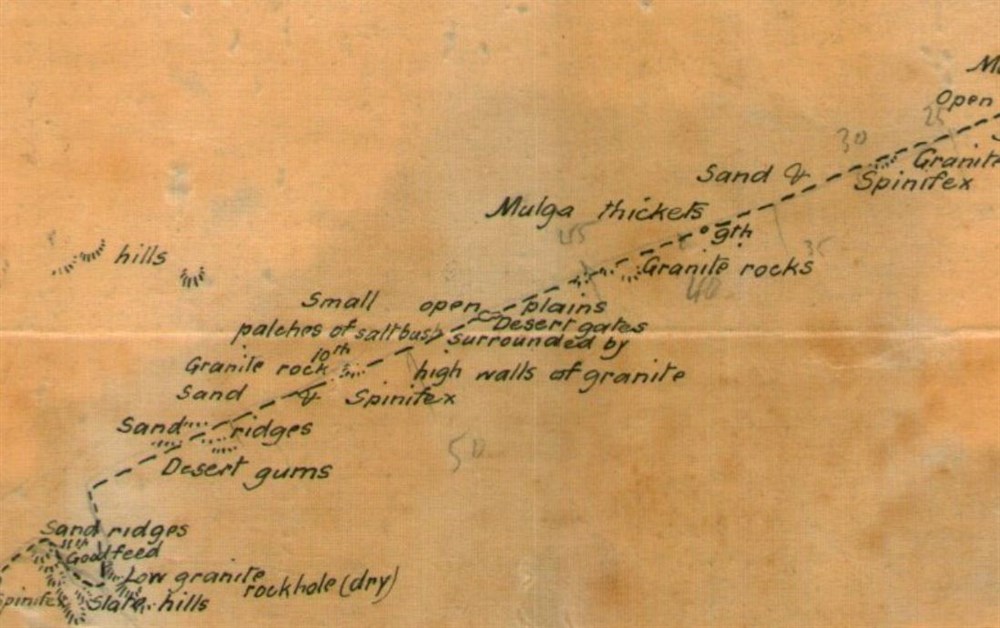 Open
25
30
Granite
Sand &
Spinifex
Mulga thickets
9th
45
35
Granite rocks
40
hills
Small open plains
patches of saltbush
Desert gates
surrounded by
10th
Granite rock
high walls of granite
Sand & Spinifex
Sand ridges
50
Desert gums
Sand ridges
11th
Good feed
Low granite
rockhole (dry)
Spinifex
Slate hills